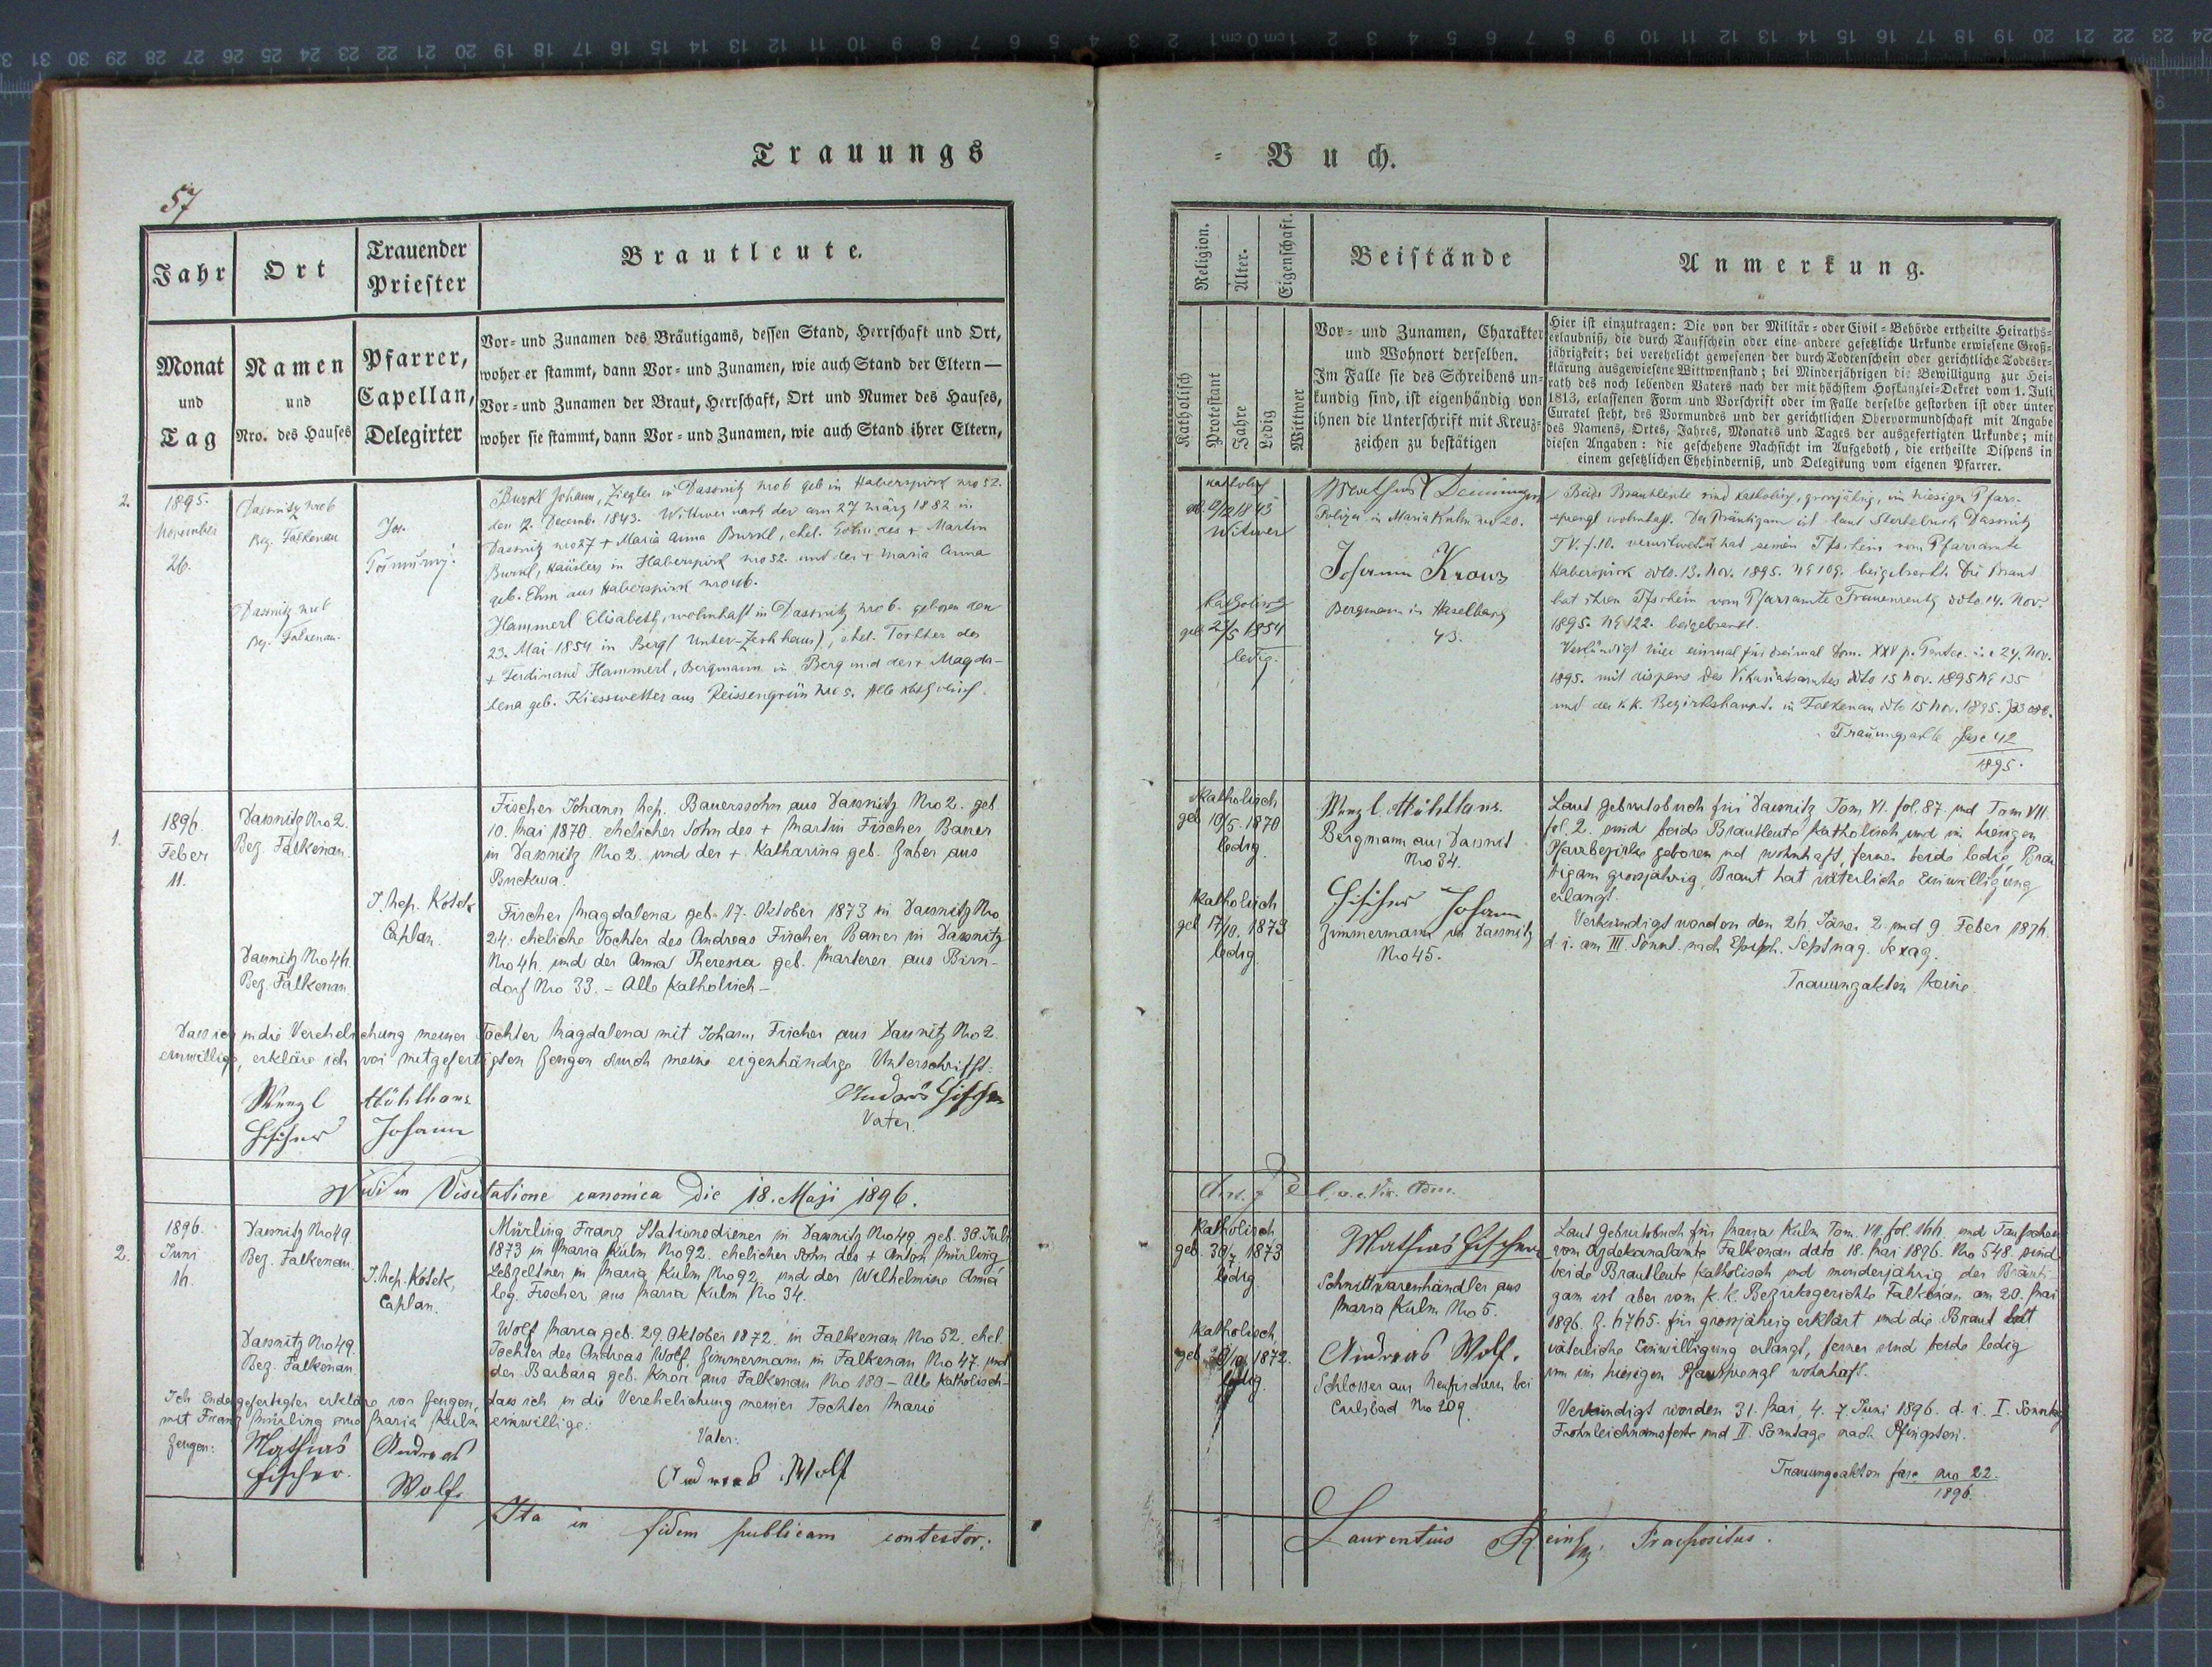 Trauungs
= Buch.
57
Jahr
Ort
Trauender
Priester
Brautleute.
Monat
und
Tag
Namen
und
Nro. des Hauses
Pfarrer,
Capellan,
Delegirter
Vor- und Zunamen des Bräutigams, dessen Stand, Herrschaft und Ort,
woher er stammt, dann Vor- und Zunamen, wie auch Stand der Eltern —
Vor- und Zunamen der Braut, Herrschaft, Ort und Numer des Hauses,
woher sie stammt, dann Vor- und Zunamen, wie auch Stand ihrer Eltern,
2.
1895.
November
26.
Dassnitz nro 6
Bez. Falkenau
Dassnitz nro 6
Bez. Falkenau.
Jos.
Burkl Johann, Ziegler in Dassnitz nro 6 geb in Haberspirk nro 52.
den 12. Decemb. 1843. Wittwer nach der am 27 März 1882 in
Dassnitz nro 27 + Maria Anna Burkl, ehel. Sohn des + Martin
Burkl, Häuslers in Haberspirk nro 52. und der + Maria Anna
geb. Ehm aus Haberspirk nro 46.
Hammerl Elisabeth, wohnhaft in Dassnitz nro 6. geboren den
23. Mai 1854 in Berg (Unter-Zechhaus), ehel. Tochter des
+ Ferdinand Hammerl, Bergmann in Berg und der + Magda-
lena geb. Kiesswetter aus Reissengrün nro 5. Alle katholisch.
1.
1896.
Feber
11.
Dassnitz Nro 2.
Bez. Falkenau.
Dassnitz Nro 44.
Bez. Falkenau
J. Nep. Kotek
Caplan.
Fischer Johann Nep. Bauerssohn aus Dassnitz Nro 2. geb
10. Mai 1870. ehelicher Sohn des + Martin Fischer Bauer
in Dassnitz Nro 2. und der +. Katharina geb. Zuber aus
Buckwa.
Fischer Magdalena geb. 17. Oktober 1873 in Dassnitz Nro
24. eheliche Tochter des Andreas Fischer Bauer in Dassnitz
Nro 44. und der Anna Theresia geb. Marterer aus Birn-
dorf Nro 33. – Alle katholisch –
Dass ich in die Verehelichung meiner Tochter Magdalena mit Johann Fischer aus Dassnitz Nro 2.
einwillige, erkläre ich vor mitgefertigten Zeugen durch meine eigenhändige Unterschrift:
Wenzl Mühlhans
Fischer Johann
Andreas Fischer
Vater.
Vidi in Visitatione canonica die 18. Maji 1896.
2.
1896.
Juni
14.
Dassnitz Nro 49.
Bez. Falkenau.
Dassnitz Nro 49.
Bez. Falkenau.
J. Nep. Kotek,
Caplan.
Mürling Franz Stationsdiener in Dassnitz Nro 49. geb. 30. Juli
1873 in Maria Kulm No 92. ehelicher Sohn des + Anton Mürling,
Lebzeltner in Maria Kulm Nro 92. und der Wilhelmine Anna
leg. Fischer aus Maria Kulm Nro 34.
Wolf Maria geb. 29. Oktober 1872. in Falkenau Nro 52. ehel.
Tochter des Andreas Wolf, Zimmermann in Falkenau Nro 47. und
der Barbara geb. Knorr aus Falkenau Nro 180 – Alle katholisch –
Ich Endesgefertigter erkläre vor Zeugen, dass ich in die Verehelichung meiner Tochter Maria
mit Franz Mürling aus Maria Kulm einwillige:
Zeugen: Mathias Fischer.
Andreas Wolf.
Vater:
Andreas Wolf
Ita in fidem publicam contestor:
Religion.
Alter.
Eigenschaft.
Beistände
Anmerkung.
Katholisch
Protestant
Jahre
Ledig
Wittwer
Vor- und Zunamen, Charakter
und Wohnort derselben.
Im Falle sie des Schreibens un-
kundig sind, ist eigenhändig von
ihnen die Unterschrift mit Kreuz-
zeichen zu bestätigen
Hier ist einzutragen: Die von der Militär- oder Civil-Behörde ertheilte Heiraths-
erlaubniß, die durch Taufschein oder eine andere gesetzliche Urkunde erwiesene Groß-
jährigkeit; bei verehelicht gewesenen der durch Todtenschein oder gerichtliche Todeser-
klärung ausgewiesene Wittwenstand; bei Minderjährigen die Bewilligung zur Hei-
rath des noch lebenden Vaters nach der mit höchstem Hofkanzlei-Dekret vom 1. Juli
1813, erlassenen Form und Vorschrift oder im Falle derselbe gestorben ist oder unter
Curatel steht, des Vormundes und der gerichtlichen Obervormundschaft mit Angabe
des Namens, Ortes, Jahres, Monates und Tages der ausgefertigten Urkunde; mit
diesen Angaben: die geschehene Nachsicht im Aufgeboth, die ertheilte Dispens in
einem gesetzlichen Ehehinderniß, und Delegirung vom eigenen Pfarrer.
katholisch
12/12 1843
Witwer
katholisch
geb 23/5 1854
ledig.
Mathias
Polizei in Maria Kulm nro 20.
Johann Kraus
Bergmann in Haselbach
43.
Beide Brautleute sind katholisch, grossjährig, im hiesigen Pfarr-
sprengl wohnhaft. Der Bräutigam ist laut Sterbebuch Dassnitz
T V. f. 10. verwitwet u. hat seinen Tfschein vom Pfarramte
Haberspirk ddto. 13. Nov. 1895. No 109. beigebracht. Die Braut
hat ihren Tfschein vom Pfarramte Frauenreuth ddto. 14. Nov.
1895. No 122. beigebracht.
Verkündigt hier einmal für dreimal Dom. XXV p. Pentec. i.e 24. Nov.
1895. mit Dispens des Vikariatsamtes ddto 15 Nov. 1895 No 135
und der k. k. Bezirkshaupt. in Falkenau ddto 15 Nov. 1895.
Trauungsakte fasc 42
1895.
Katholisch
geb 10/5. 1870
ledig.
Katholisch
geb 17/10. 1873
ledig.
Wenzl Mühlhans.
Bergmann aus Dassnit
Nro 34.
Fischer Johann
Zimmermann in Dassnitz
Nro 45.
Laut Geburtsbuch für Dassnitz Tom VI. fol. 87. und Tom VII.
fol. 2. sind beide Brautleute katholisch und im hiesigen
Pfarrbezirke geboren und wohnhaft, ferner beide ledig, Bräu
tigam grossjährig, Braut hat väterliche Einwilligung
erlangt.
Verkündigt worden den 26. Jäner 2. und 9. Feber 1896.
d. i. am III. Sonnt. nach Epiph. Septuag. Sexag.
Trauungsakten keine.
Katholisch
geb. 30/7 1873
ledig
Katholisch,
geb. 29/10 1872.
ledig.
Mathias Fischer
Schnittwarenhändler aus
Maria Kulm Nro 5.
Andreas Wolf.
Schlosser aus Neufischern bei
Carlsbad Nro 209.
Laut Geburtsbuch für Maria Kulm Tom. VII. fol. 144. und Taufschein
vom Erzdekanalamte Falkenau ddto 18. Mai 1896. Nro 548. sind
beide Brautleute katholisch und minderjährig, der Bräuti
gam ist aber vom k. k. Bezirksgerichte Falkenau am 20. Mai
1896. Z. 6765. für grossjährig erklärt und die Braut hat
väterliche Einwilligung erlangt, ferner sind beide ledig
und im hiesigen Pfarrsprengl wohnhaft.
Verkündigt worden 31. Mai, 4. 7. Juni 1896. d. i. I. Sonntag
Frohnleichnamsfeste und II. Sonntage nach Pfingsten.
Trauungsakten fasc Nro 22.
1896.
Laurentius Praepositus.